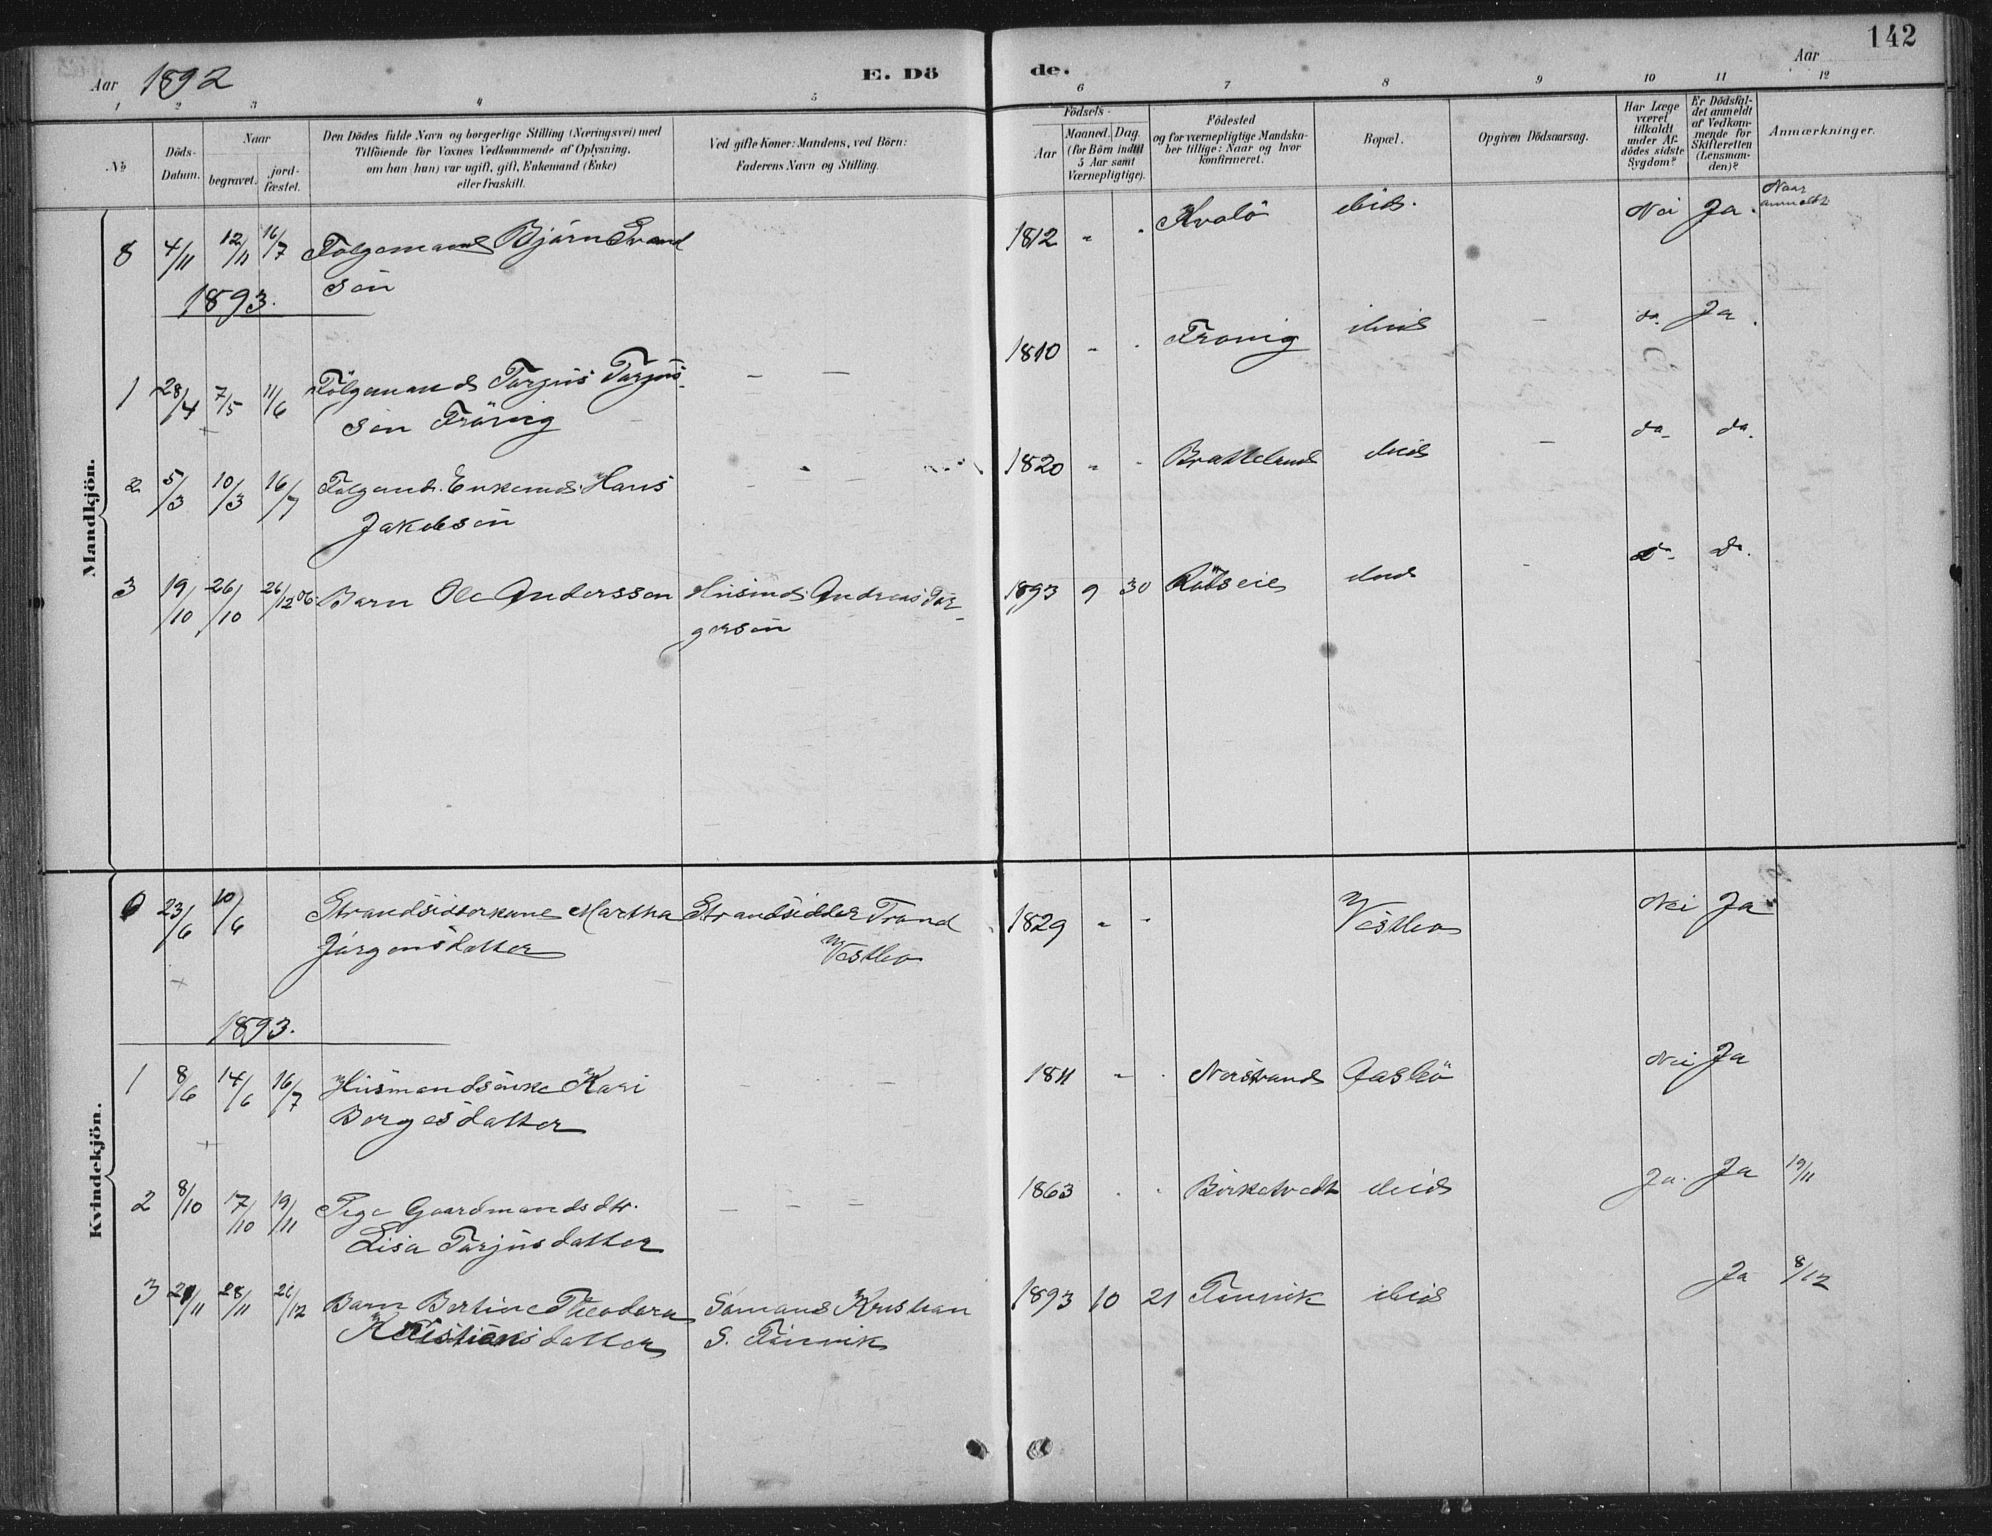 142
Aar 1892
E. Dö
de.
Aar
1 2 3 4 5
6 7 8 9 10 11 12
No
Döds-
Datum.
Naar
begravet.
jord-
fæstet.
Den Dödes fulde Navn og borgerlige Stilling (Næringsvei) med
Tilföiende for Voxnes Vedkommende af Oplysning,
om han (hun) var ugift, gift, Enkemand (Enke)
eller fraskilt.
Ved gifte Koner: Mandens, ved Börn:
Faderens Navn og Stilling.
Födsels-
Aar
Maaned. Dag.
(for Börn indtil
5 Aar samt
Værnepligtige).
Födested
og for værnepligtige Mandska-
ber tillige: Naar og hvor
konfirmeret.
Bopæl.
Opgiven Dödsaarsag.
Har Læge
været
tilkaldt
under Af-
dödes sidste
Sygdom?
Er Dödsfal-
det anmeldt
af Vedkom-
mende for
Skifteretten
(Lensman-
den)?
Anmærkninger.
Mandkjön.
Naar
anmeldt
8 4/11 12/11 16/7 Følgemand Bjørn 1812 - - Kvalö ibid. Nei Ja.
son
1893.
1 28/4 7/5 11/6 Fölgemand Tarjus Tarjus- — — 1810 - - ibid — do. Ja.
son
2 5/3 10/3 16/7 Enkemd. Hans — — 1820 - - Bratteland ibid — do. do.
Jakobson
3 19/10 26/10 26/12 06 Barn Ole Anderssen Husmd. Andreas Tor- 1893 9 30 ibid - do. do.
gerson
Kvindekjön.
6 23/6 10/6 Strandsidderkone Martha Strandsidder Trond 1829 - - Vestbo Nei Ja
Jörgensdatter Vestbo
1893.
1 8/6 14/6 16/7 Husmandsenke Kari - - 1811 - - Norstrand Nei Ja
Borgesdatter
2 8/10 17/10 19/11 Pige Gaardmandsdtr. — — — 1863 - - Birketvedt ibid Ja. Ja 19/11
Lisa Tarjusdatter
3 21/11 28/11 26/12 Barn Bertine Theodora Sömand Kristian 1893 10 21 ibid Ja 8/12
Kristiansdatter S.